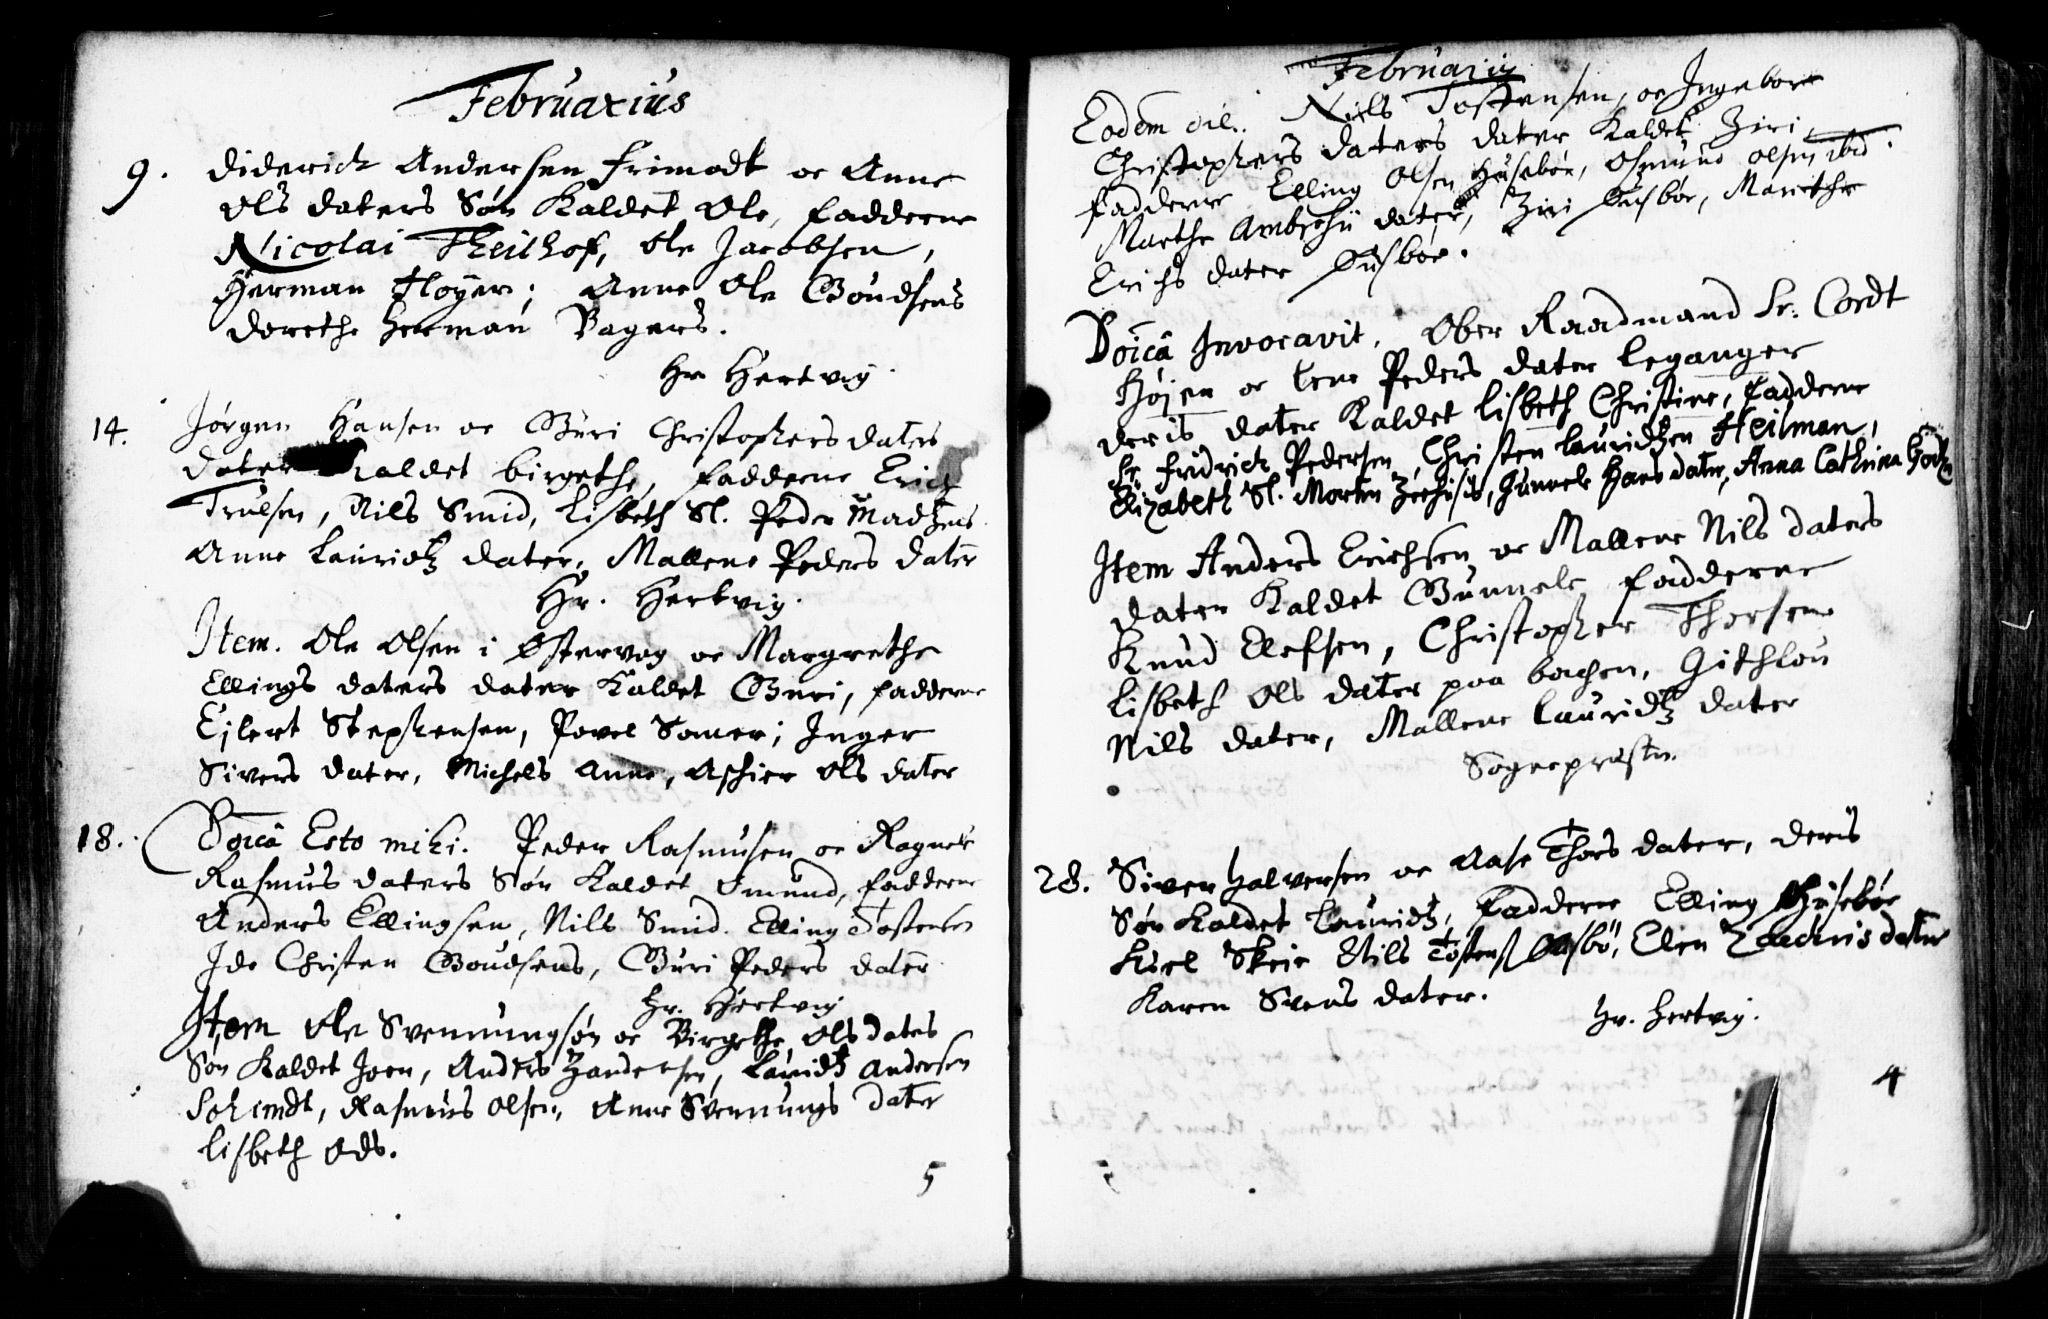 Februarius
9. Diderich Andersen Frimodt oc Anne
Ols daters Søn Kaldet Ole, Fadderne
Nicolai Theilhof, Ole Jacobsen,
Herman Fløyer; Anne Ole Goudsens
Dorethe Herman Bagers.
Hr Hertvig.
14. Jørgen Hansen oc Guri Christophers daters
dater Kaldet birgethe, Fadderne Erich
Trulsen, Nils Smid, Lisbeth Sl. Peder Madzens
Anne Lauridtz dater, Mallene Peders dater
Hr. Hertvig.
Item. Ole Olsen i Østervog oc Margrethe
Ellings daters dater Kaldet Guri, Fadderne
Ejlert Stephensen, Povel Somer; Inger
Sivers dater, Michels Anne, Aschier Ols dater
18. Doīcâ Esto mihi. Peder Rasmusen oc Ragnele
Rasmus daters Søn Kaldet Omund, Fadderne
Anders Ellingsen, Nils Smid. Elling Tostensen
Ide Christen Goudsens, Guri Peders dater
Hr. Hertvig
Item Ole Svennungsøn oc Birgethe Ols dates
Søn Kaldet Joen, Anders Zandersen, Lauridtz Andersen
Schmidt, Rasmus Olsen, Anne Svennungs dater
Lisbeth Ods.
5
Februarij
Eodem die. Niels Tostensen, oc Ingebor
Christophers daters dater Kaldet Ziri,
Fadderne Elling Olsen Husebøe, Osmund Olsen ibid.
Marthe Ambrosii dater, Ziri Husbøe, Marithe
Erichs dater Husbøe.
Doīcâ Invocavit. Ober Raadmand Sr. Cordt
Højer oc Lene Peders dater Leganger
deris dater Kaldet Lisbeth Christine, Fadderne
Sr. Fridrich Pedersen, Christen Lauridtzen Heilman,
Elizabeth Sl. Morten, Gunnele Hans dater, Anna Cathrina
Item Anders Erichsen oc Mallene Nils daters
dater Kaldet Gunnele Fadderne
Knud Elefsen, Christopher Thorsen
Lisbeth Ols dater paa bachen, Githlou
Nils dater, Mallene Lauridtz dater
Sognepræsten.
28. Siver Halversen oc Aase Thors dater, deris
Søn Kaldet Lauridtz, Fadderne Elling Husebøe
Karl Skeie Nils Tostens Husbø, Elen Zachris dater
Karen Svens dater.
Hr. Hertvig.
4